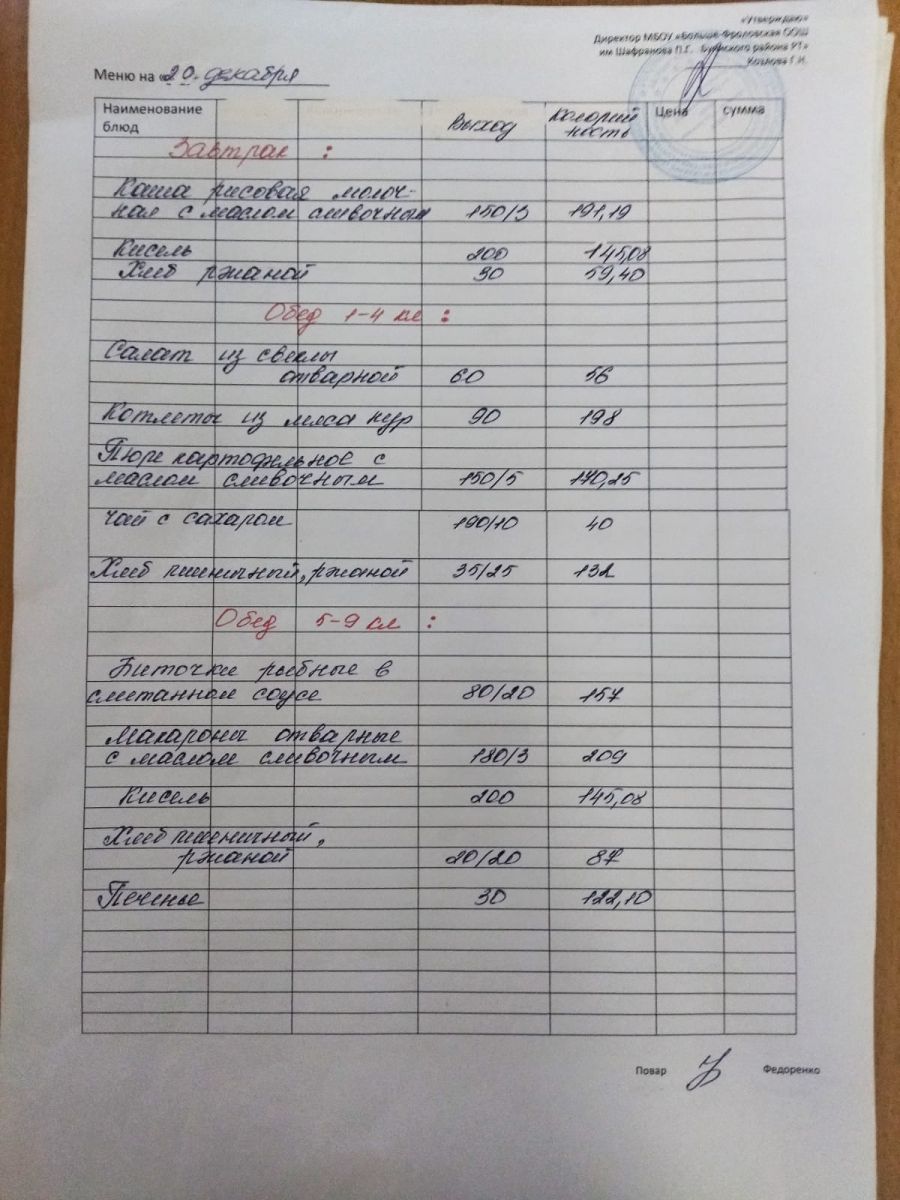 «Утверждаю»
Директор МБОУ «Больше-Фроловская ООШ
им Шафранова П.Г. Буинского района РТ»
Козлова Г.И.
Меню на «20» декабря
Наименование блюд Выход Калорийность Цена сумма
Завтрак :
Каша рисовая молоч-
ная с маслом сливочным 150/3 191,19
Кисель 200 145,08
Хлеб ржаной 30 59,40
Обед 1-4 кл :
Салат из свеклы
отварной 60 56
Котлеты из мяса кур 90 198
Пюре картофельное с
маслом сливочным 150/5 170,25
Чай с сахаром 190/10 40
Хлеб пшеничный, ржаной 35/25 132
Обед 5-9 кл :
Биточки рыбные в
сметанном соусе 80/20 157
Макароны отварные
с маслом сливочным 180/3 209
Кисель 200 145,08
Хлеб пшеничный,
ржаной 20/20 87
Печенье 30 122,10
Повар Федоренко